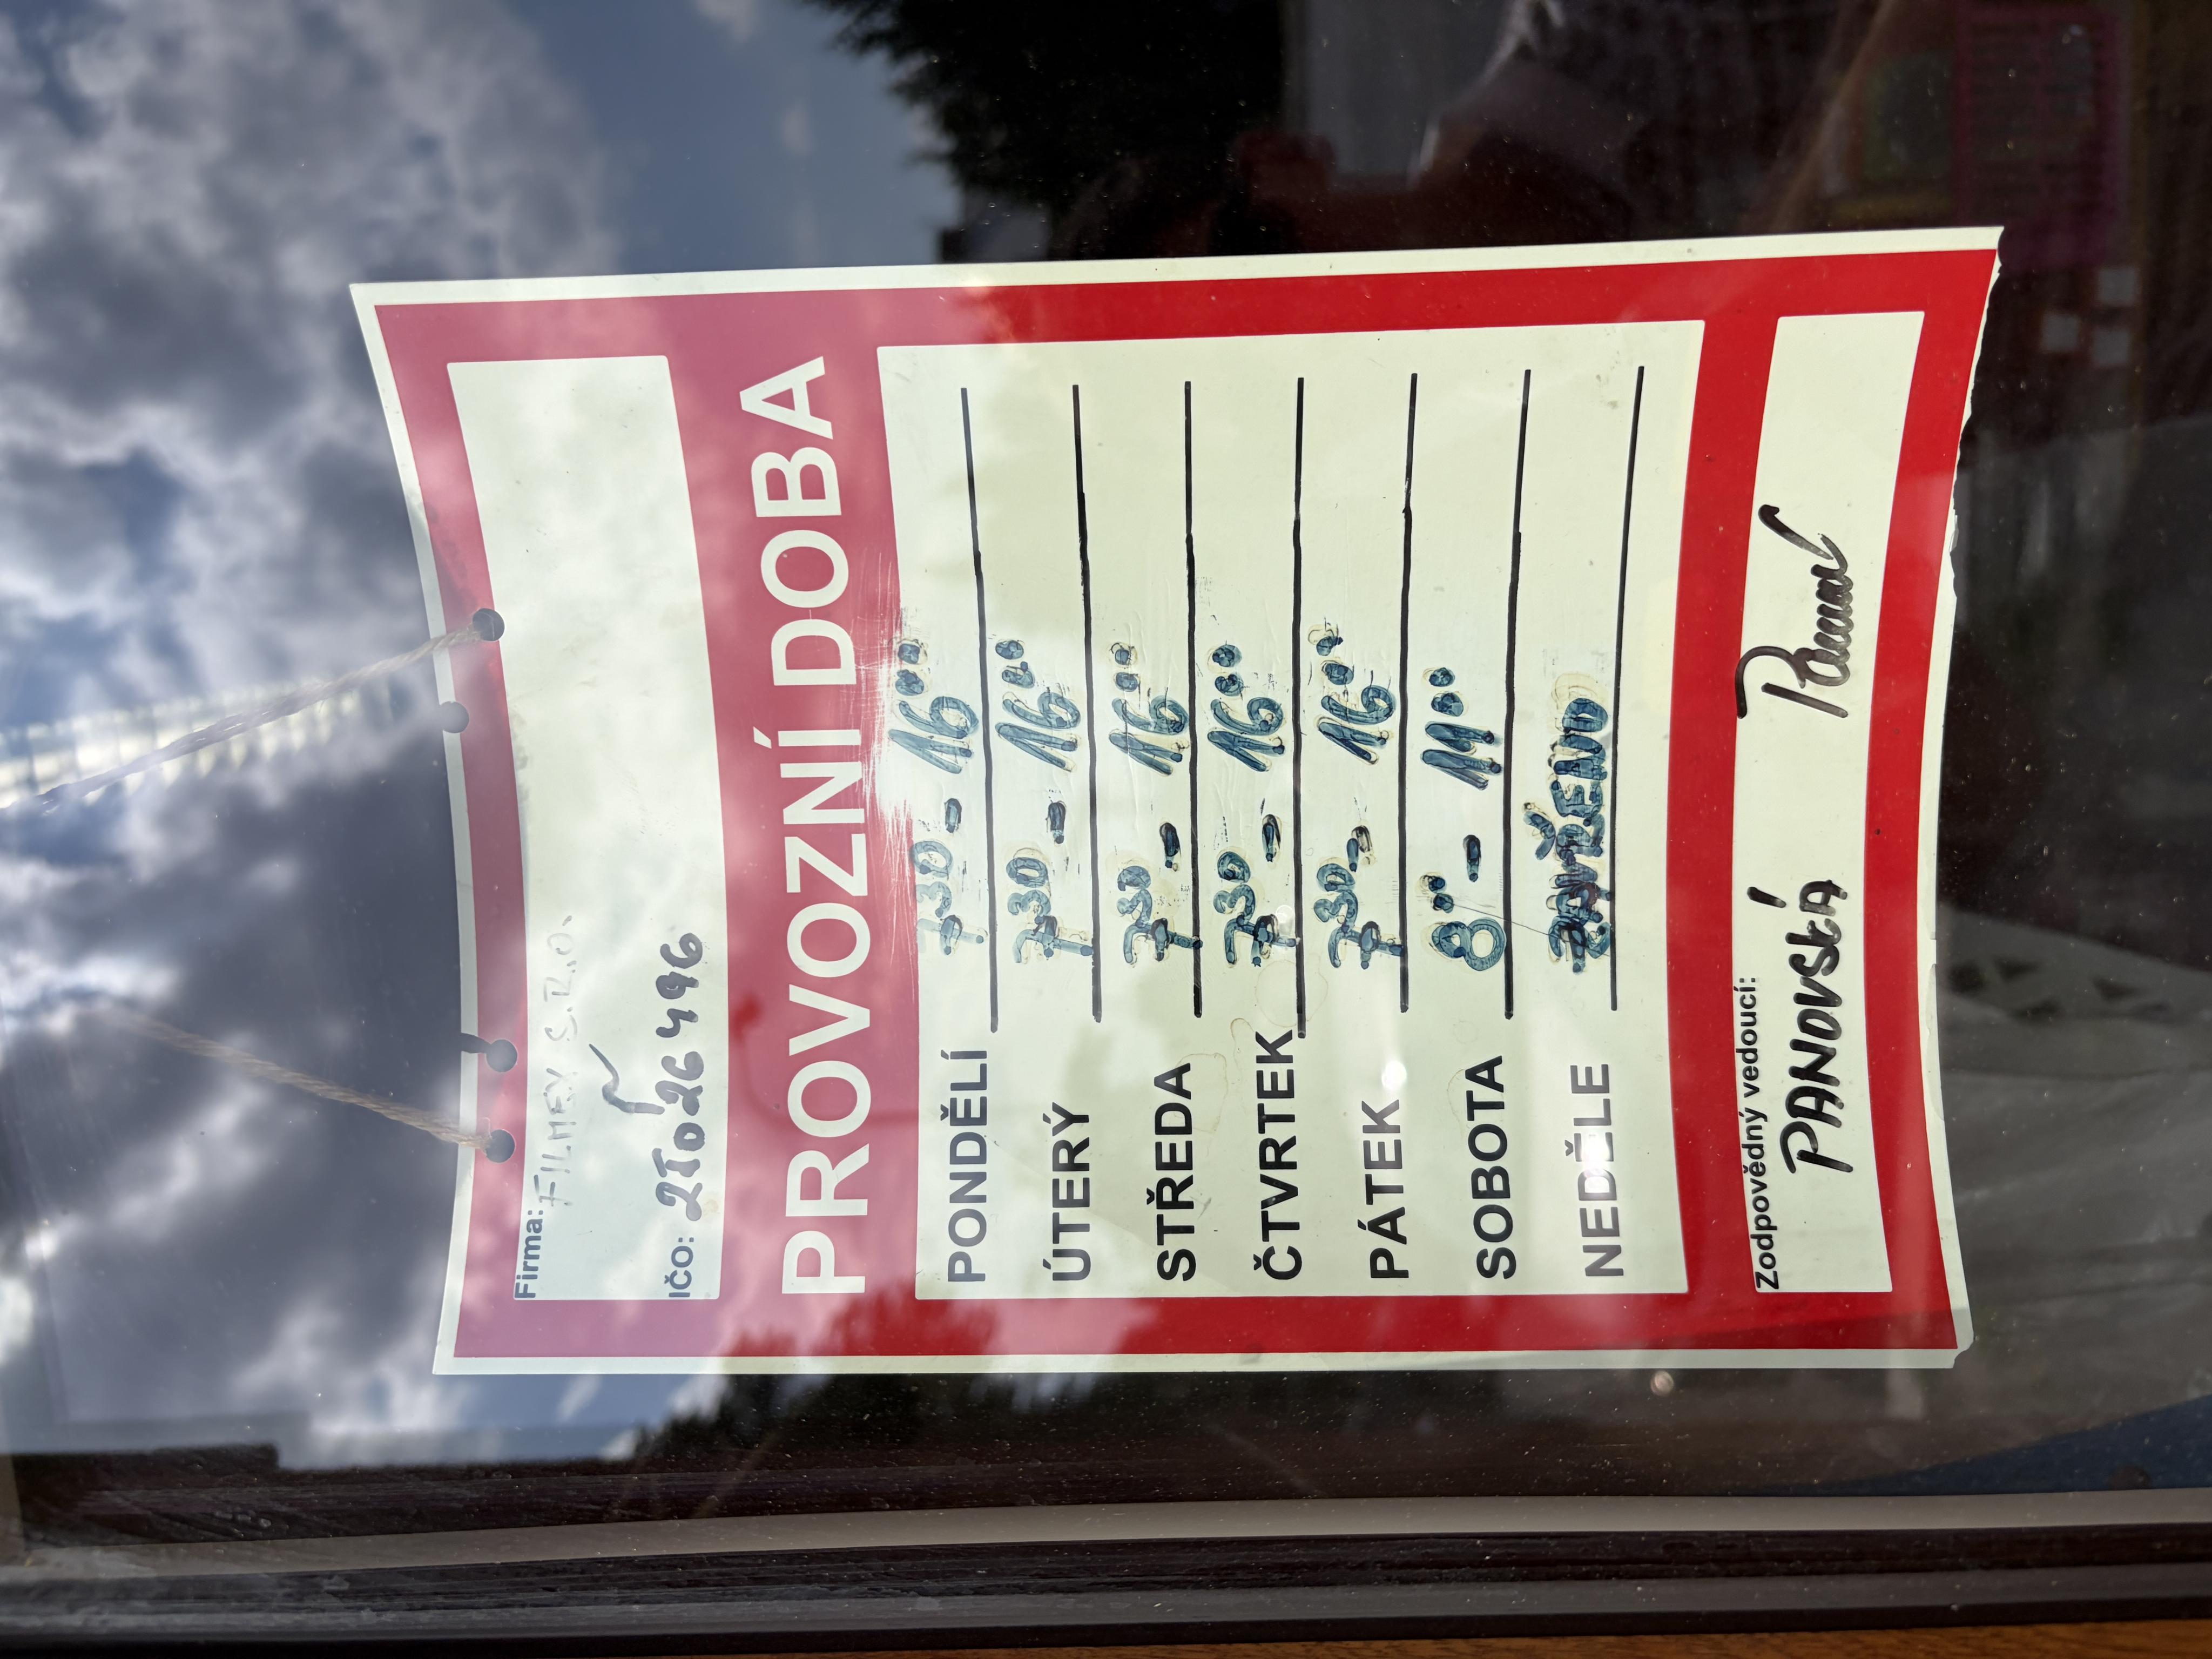 Firma: FILMEX S.R.O.
IČO:
PROVOZNÍ DOBA
PONDĚLÍ 7³⁰ - 16⁰⁰
ÚTERÝ 7³⁰ - 16⁰⁰
STŘEDA 7³⁰ - 16⁰⁰
ČTVRTEK 7³⁰ - 16⁰⁰
PÁTEK 7³⁰ - 16⁰⁰
SOBOTA 8⁰⁰ - 11⁰⁰
NEDĚLE ZAVŘENO
Zodpovědný vedoucí:
PANOVSKÁ